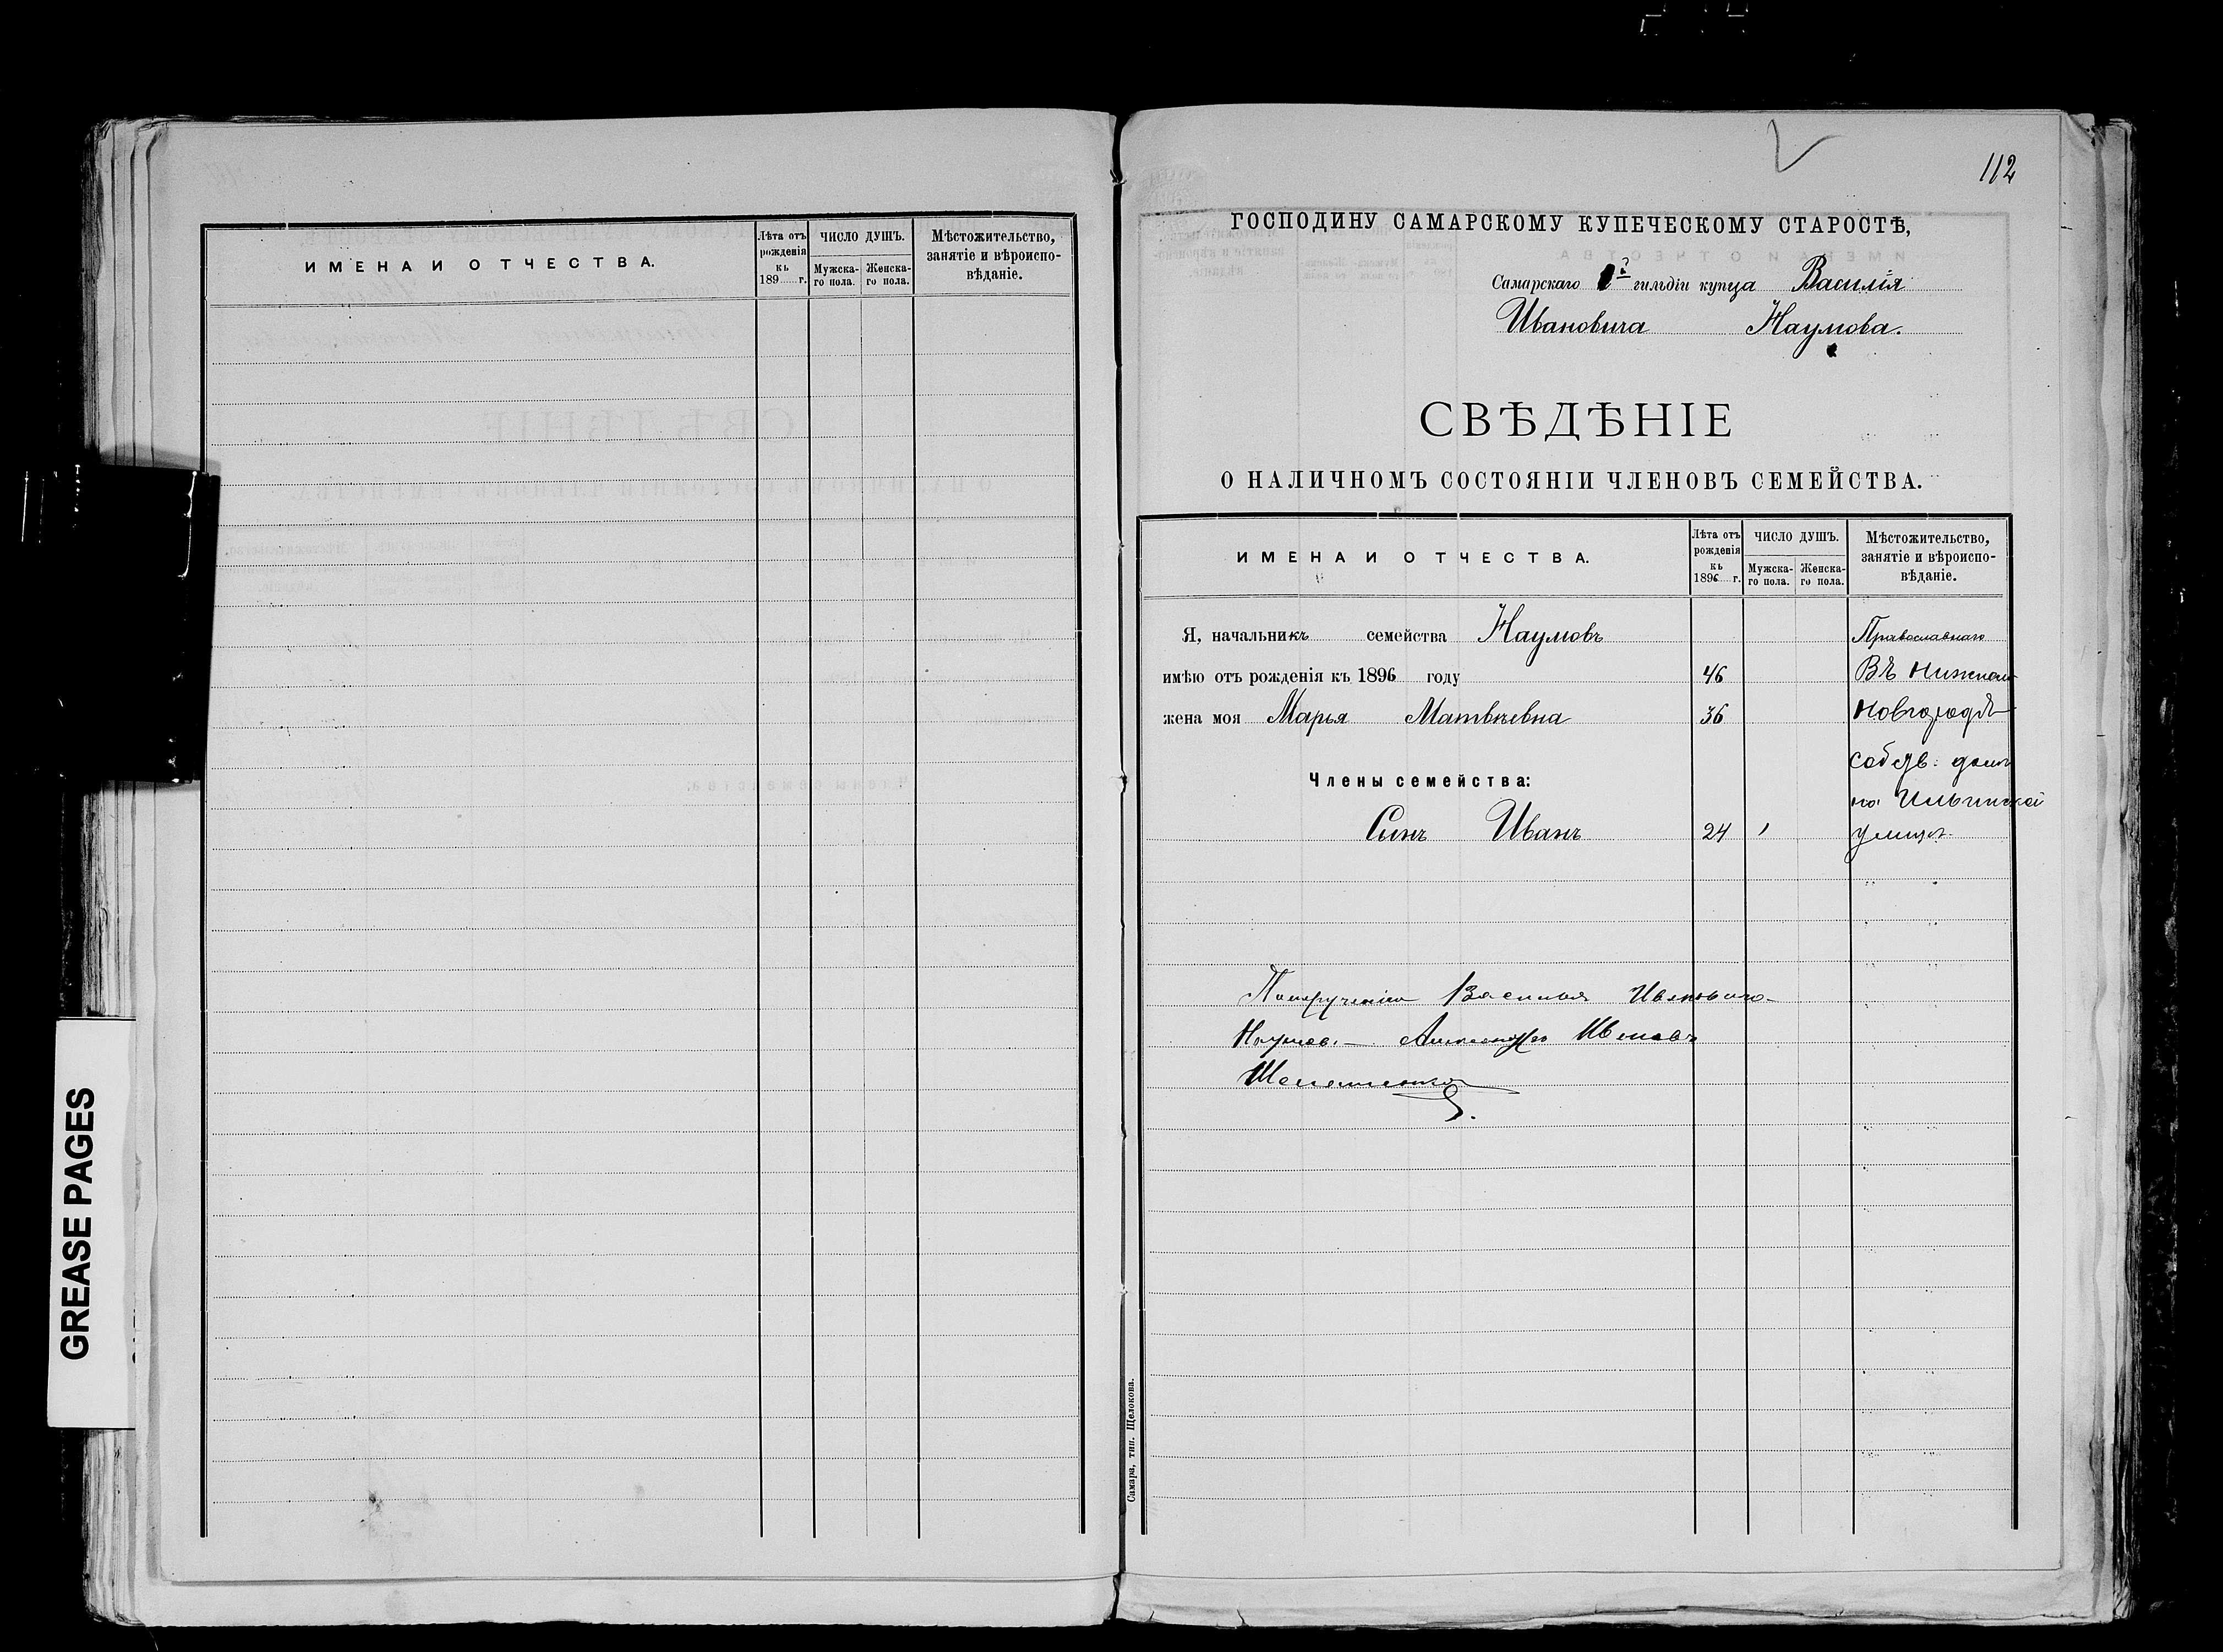 ИМЕНА И ОТЧЕСТВА.
Лѣта отъ рожденія къ 189 г.
ЧИСЛО ДУШЪ.
Мужска-го пола.
Женска-го пола.
Мѣстожительство, занятіе и вѣроиспо-вѣданіе.
GREASE PAGES
112
ГОСПОДИНУ САМАРСКОМУ КУПЕЧЕСКОМУ СТАРОСТѢ,
Самарскаго гильдіи купца Василія
Ивановича Наумова.
СВѢДѢНІЕ
О НАЛИЧНОМЪ СОСТОЯНІИ ЧЛЕНОВЪ СЕМЕЙСТВА.
ИМЕНА И ОТЧЕСТВА.
Лѣта отъ рожденія къ 1896 г.
ЧИСЛО ДУШЪ.
Мужска-го пола.
Женска-го пола.
Мѣстожительство, занятіе и вѣроиспо-вѣданіе.
Я, начальникъ семейства Наумовъ Православнаго
имѣю отъ рожденія къ 1896 году 46 Въ Нижнемъ
жена моя Марья Матвѣевна 36 Новгородѣ
собств. домъ
Члены семейства:
на Ильинской
Сынъ Иванъ 24 1 улицѣ
По порученію Василья Ивановича
Наумова Александръ Ивановъ
Самара, тип. Щелокова.